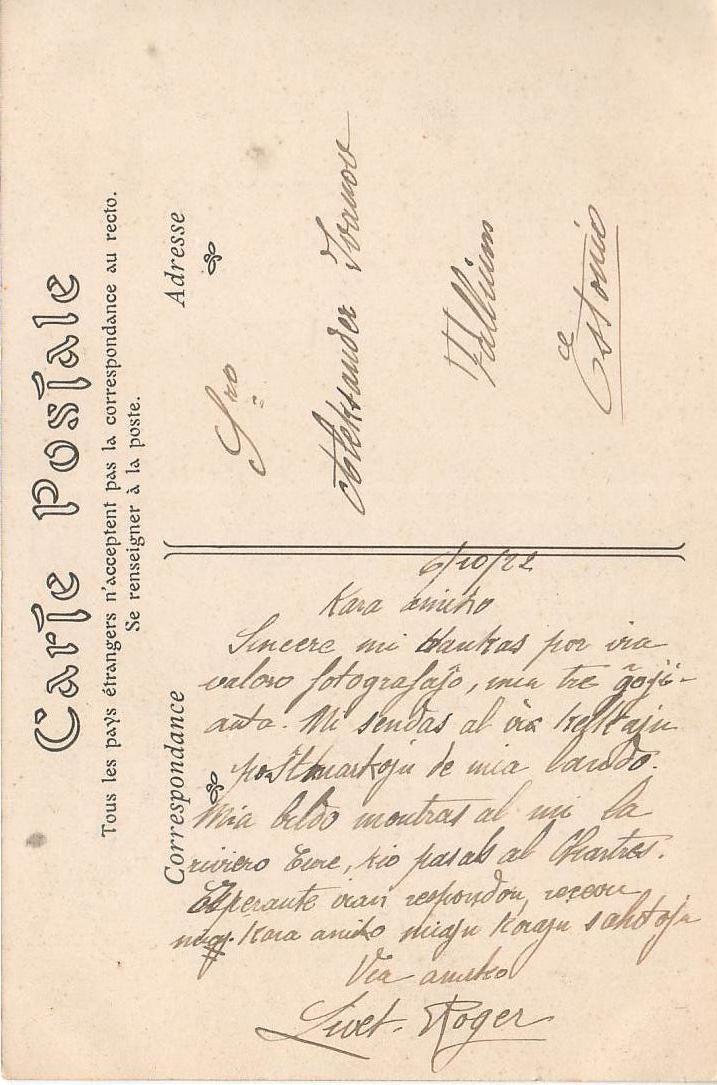 Carte Postale
Tous les pays étrangers n'acceptent pas la correspondance au recto.
Se renseigner à la poste.
Correspondance
6/10/22
Kara amiko
Sincere mi dankas por via
valoro fotografaĵo, mia tre ĝoji-
anta. Mi sendas al vi kelkaju
postmarkoju de mia lando.
Mia bildo montras al mi la
riviero Eure, kio pasas al Chartres.
Esperante vian respondon, recevu
Kara amiko miaju koraju salutoju
Via amiko
Livet. Roger
Adresse
Sro
Aleksander Ivanov
Estonie